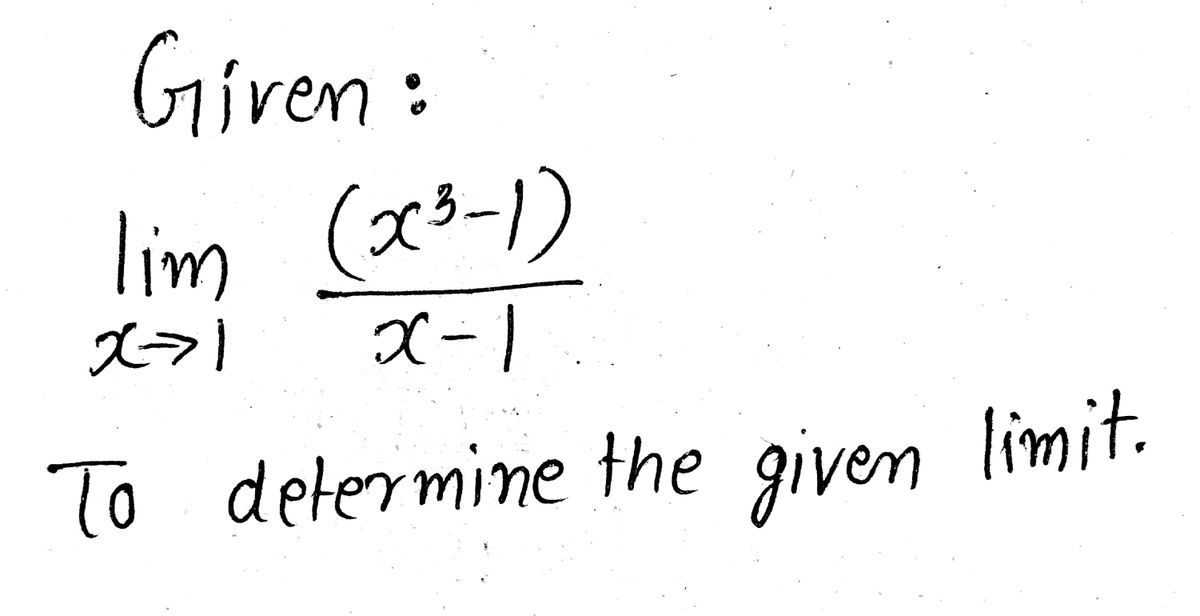 Given :
lim (x³-1)
x→1 x-1
To determine the given limit.